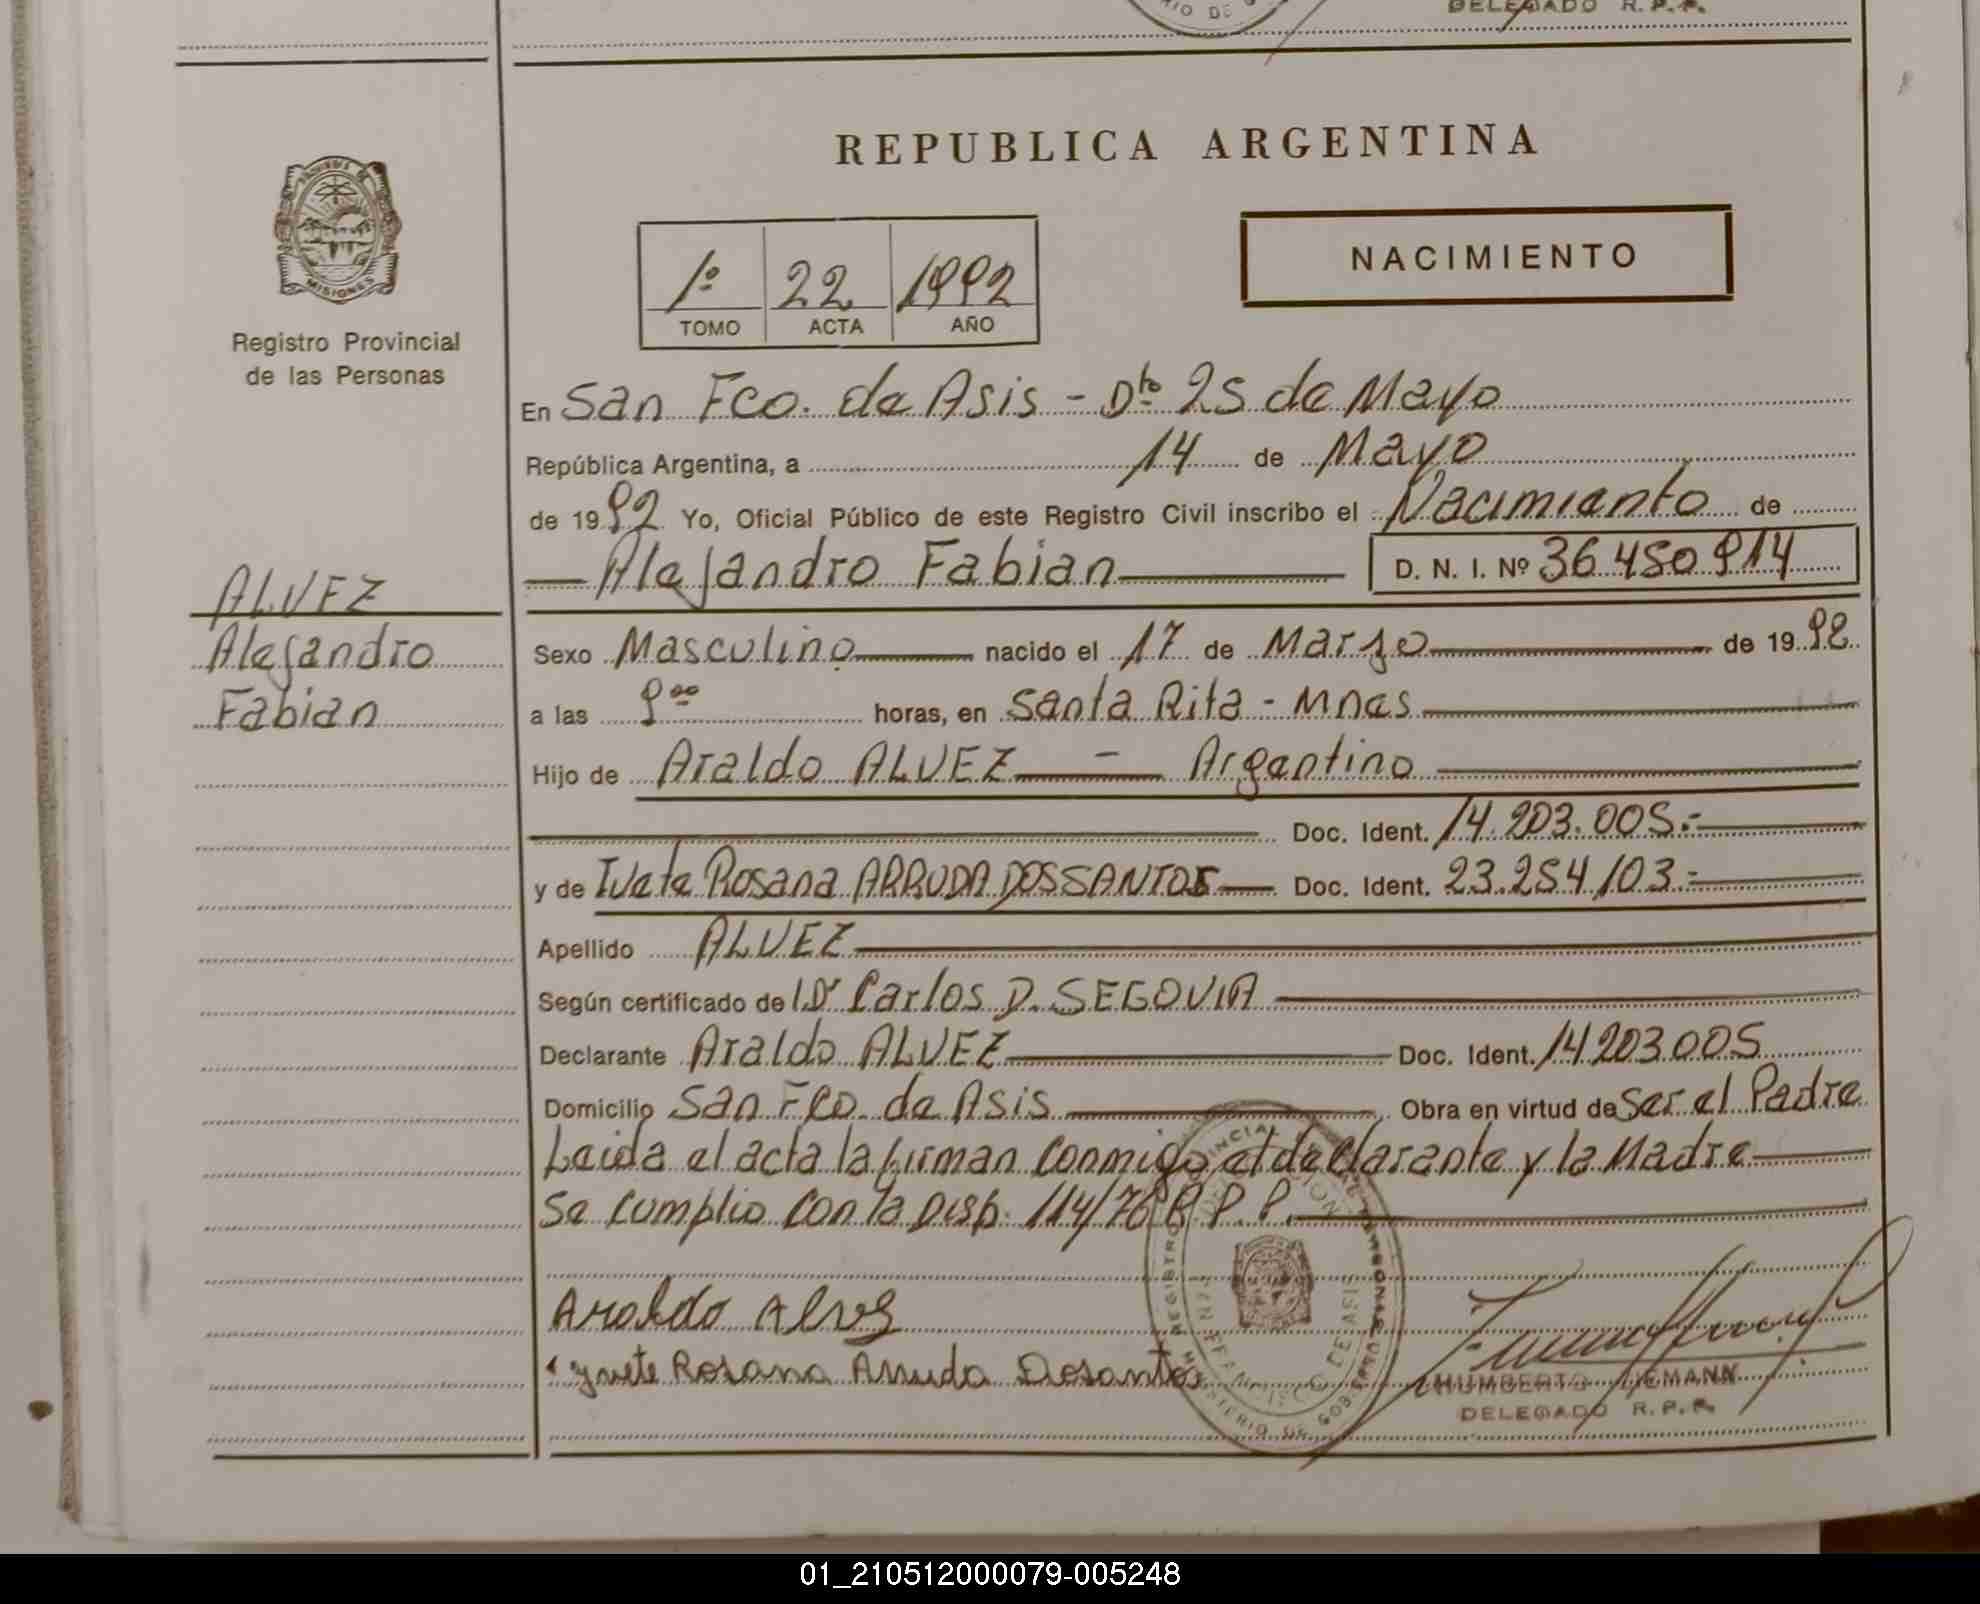 DELEGADO R.P.P.
REPUBLICA ARGENTINA
MISIONES
Registro Provincial
de las Personas
NACIMIENTO
1º 22 1992
TOMO ACTA AÑO
En San Fco. de Asis - Dto 25 de Mayo
República Argentina, a 14 de Mayo
de 1992 Yo, Oficial Público de este Registro Civil inscribo el Nacimiento de
Alejandro Fabian D. N. I. Nº 36.450.914
ALVEZ
Alejandro
Fabian
Sexo Masculino nacido el 17 de Marzo de 1992
a las 9 00 horas, en Santa Rita - Mnes
Hijo de Araldo ALVEZ - Argentino
Doc. Ident. 14.203.005.-
y de Ivete Rosana ARRUDA DOSSANTOS Doc. Ident. 23.254.103.-
Apellido ALVEZ
Según certificado de l Dr Carlos D. SEGOVIA
Declarante Araldo ALVEZ Doc. Ident. 14.203.005
Domicilio San Fco. de Asis Obra en virtud de ser el Padre
Leida el acta la firman conmigo el declarante y la Madre
Se cumplio con la Disp. 114/76 R.P.P.
Araldo Alves
Yvete Rosana Arruda Dosantos
HUMBERTO
DELEGADO R.P.P.
01_210512000079-005248